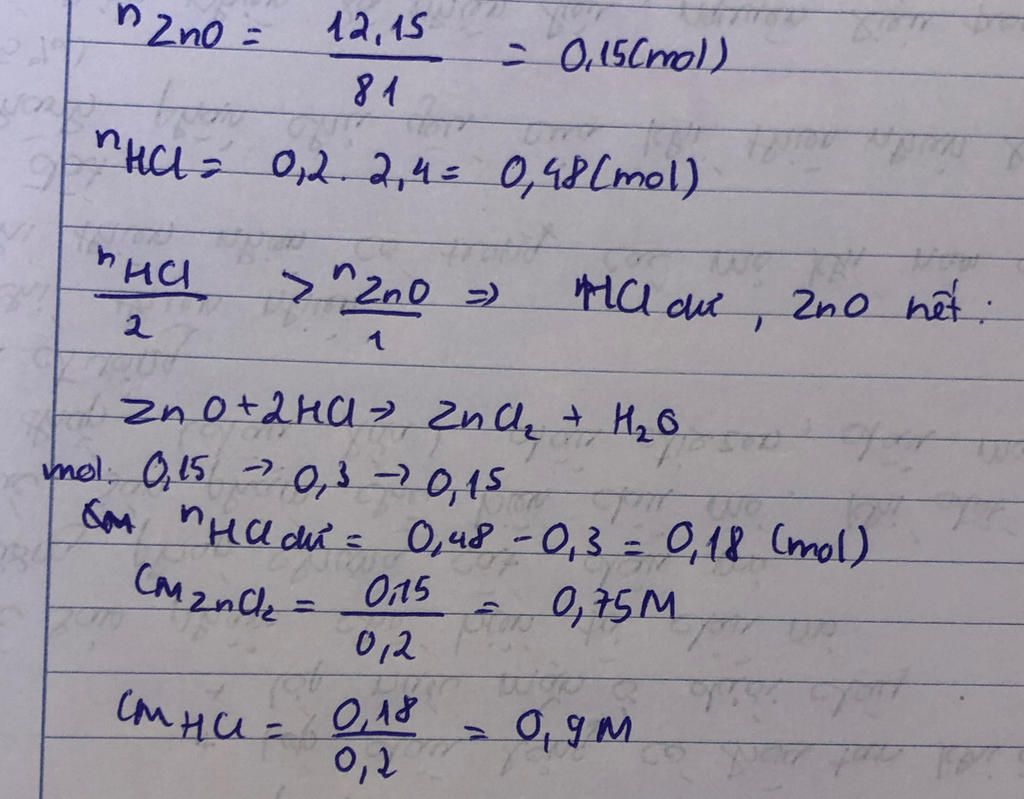 nZnO = 12,15/81 = 0,15(mol)
nHCl = 0,2 . 2,4 = 0,48(mol)
nHCl/2 > nZnO/1 ⇒ HCl dư, ZnO hết.
ZnO + 2HCl → ZnCl₂ + H₂O
mol: 0,15 → 0,3 → 0,15
nHCl dư = 0,48 - 0,3 = 0,18 (mol)
CM ZnCl₂ = 0,15/0,2 = 0,75M
CM HCl = 0,18/0,2 = 0,9M